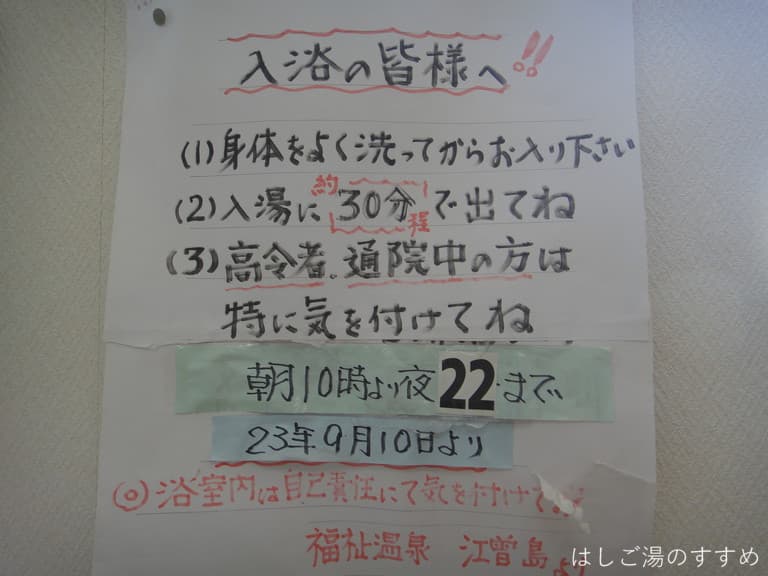 入浴の皆様へ!!
(1)身体をよく洗ってからお入り下さい
(2)入湯に約30分程で出てね
(3)高令者、通院中の方は
特に気を付けてね
朝10時より夜22までで
23年9月10日より
◎浴室内は自己責任にて気を付けて
福祉温泉 江曽島より
はしご湯のすすめ